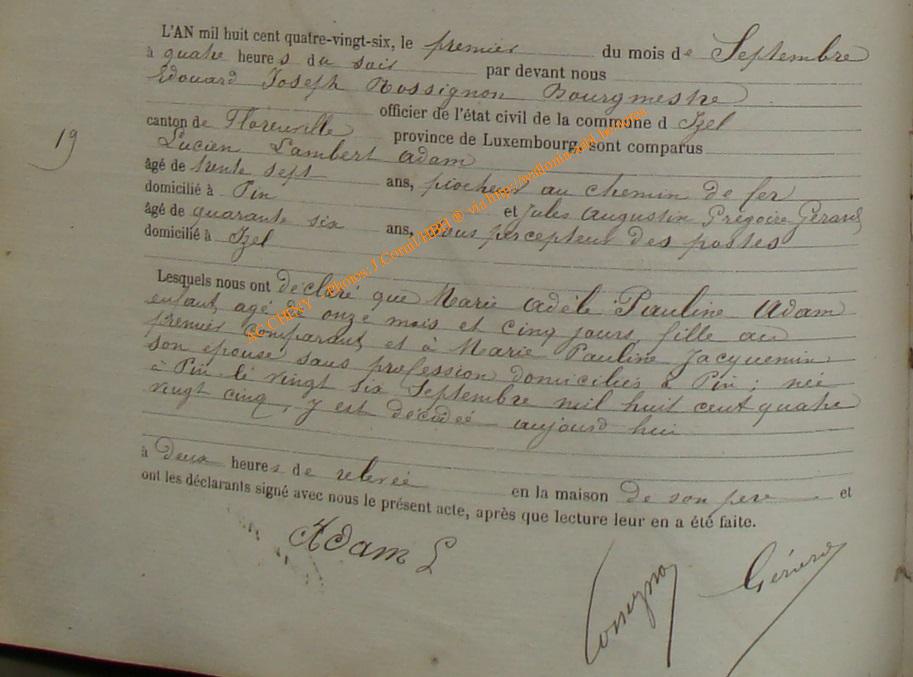 L'AN mil huit cent quatre-vingt-six, le premier du mois de Septembre
à quatre heures du soir par devant nous
Edouard Joseph Rossignon Bourgmestre
officier de l'état civil de la commune d Izel
canton de Florenville province de Luxembourg, sont comparus
19
Lucien Lambert Adam
âgé de trente sept ans, piocheur au chemin de fer
domicilié à Pin et Jules Augustin Grégoire Gérard
âgé de quarante six ans, sous percepteur des postes
domicilié à Izel
Lesquels nous ont déclaré que Marie Adèle Pauline Adam
enfant, agé de onze mois et cinq jours fille au
premier comparant, et à Marie Pauline Jacquemin
son épouse, sans profession domiciliés à Pin ; née
à Pin le vingt six Septembre mil huit cent quatre
vingt cinq, y est décédée aujourd hui
à deux heures de relevée en la maison de son père et
ont les déclarants signé avec nous le présent acte, après que lecture leur en a été faite.
Adam L
Gérard